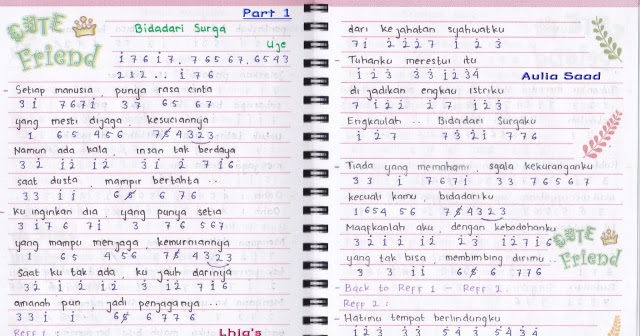 Part 1
CUTE
Friend
Bidadari Surga
Uje
i 7 6 i 7 . 7 6 5 6 7 . 6 5 4 3
2 1 2 . . i 7 6
- Setiap manusia , punya rasa cinta
3 i 7 6 7 i 3 7 6 5 6 7
yang mesti dijaga , kesuciannya
1 6 5 4 5 6 7 5 4 3 2 3
Namun ada kala , insan tak berdaya
3 2 i 2 i 2 3 i 2 7 i 6
saat dusta , mampir bertahta . .
3 3 i i 6 5 6 7 6
- Ku inginkan dia , yang punya setia
3 i 7 6 7 i 3 7 6 5 6 7
yang mampu menjaga , kemurniannya
1 6 5 4 5 6 7 5 4 3 2 3
Saat ku tak ada , ku jauh darinya
3 2 i 2 i 2 3 i 2 7 i 6
amanah pun jadi penjaganya . . .
3 3 i i 6 5 6 7 7 6
Reff 1 :
Lhia's
dari kejahatan syahwatku
7 i 2 2 2 7 i 2 3
- Tuhanku merestui itu
i 2 3 3 3 i 2 3 4
Aulia Saad
di jadikan engkau istriku
7 i 2 2 2 7 i 2 3
Engkaulah . . Bidadari Surgaku
i 2 7 7 3 2 i 7 7 6
- Tiada yang memahami , sgala kekuranganku
3 3 i 7 6 7 i 3 3 7 6 5 6 7
kecuali kamu , bidadariku
1 6 5 4 5 6 7 5 4 3 2 3
Maafkanlah aku , dengan kebodohanku
3 2 i 2 i i 2 2 3 i 2 7 i 6
CUTE
Friend
yang tak bisa , membimbing dirimu . .
3 3 i i 6 5 6 7 7 6
Back to Reff 1 - Reff 2 .
Reff 2 :
- Hatimu tempat berlindungku
i 2 3 3 3 5 4 3 5 4 3 4